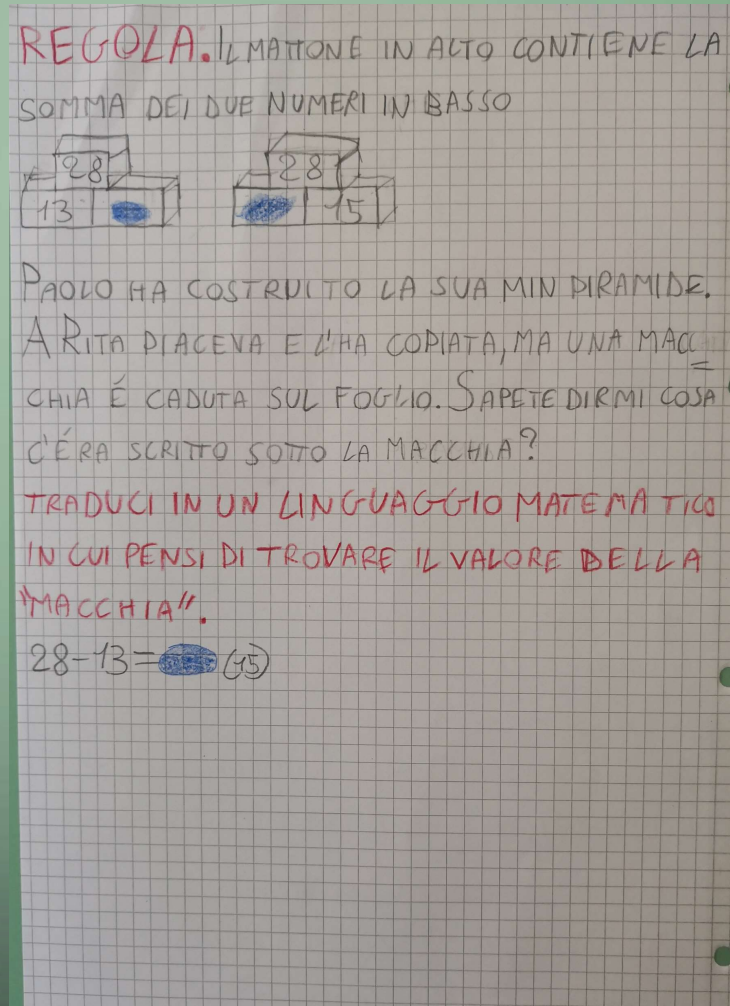 REGOLA. IL MATTONE IN ALTO CONTIENE LA
SOMMA DEI DUE NUMERI IN BASSO
28 28
13 15
PAOLO HA COSTRUITO LA SUA MIN PIRAMIDE.
A RITA PIACEVA E L'HA COPIATA, MA UNA MAC=
CHIA É CADUTA SUL FOGLIO. SAPETE DIRMI COSA
C'ÉRA SCRITTO SOTTO LA MACCHIA?
TRADUCI IN UN LINGUAGGIO MATEMATICO
IN CUI PENSI DI TROVARE IL VALORE DELLA
"MACCHIA".
28-13= (15)